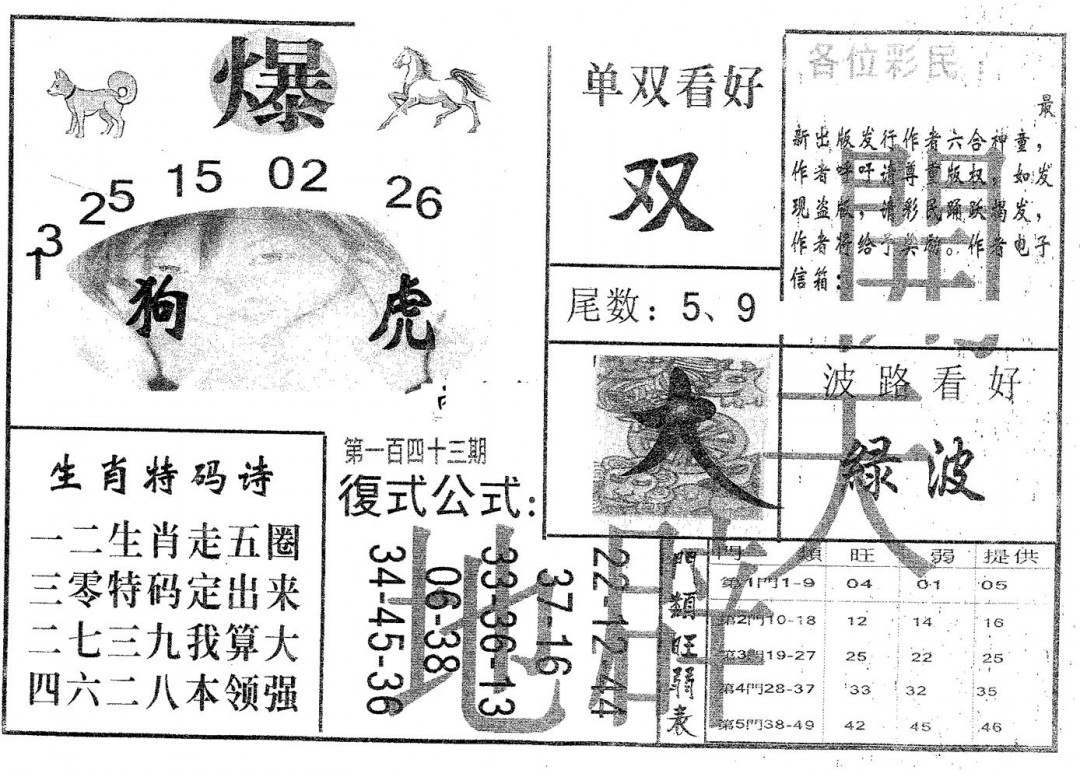 爆
13
25
15
02
26
狗
虎
生肖特码诗
一二生肖走五圈
三零特码定出来
二七三九我算大
四六二八本领强
第一百四十三期
復式公式：
34-45-36
06-38
33-36-13
37-16
22-12-44
单双看好
双
尾数：5、9
大
各位彩民：
最
新出版发行作者六合神童，
作者呼吁请尊重版权，如发
现盗版，请彩民踊跃揭发，
作者将给予奖励。作者电子
信箱：
波路看好
緑波
開
天
地
門類旺弱表
門類 旺 弱 提供
第1門1-9 04 01 05
第2門10-18 12 14 16
第3門19-27 25 22 25
第4門28-37 33 32 35
第5門38-49 42 45 46